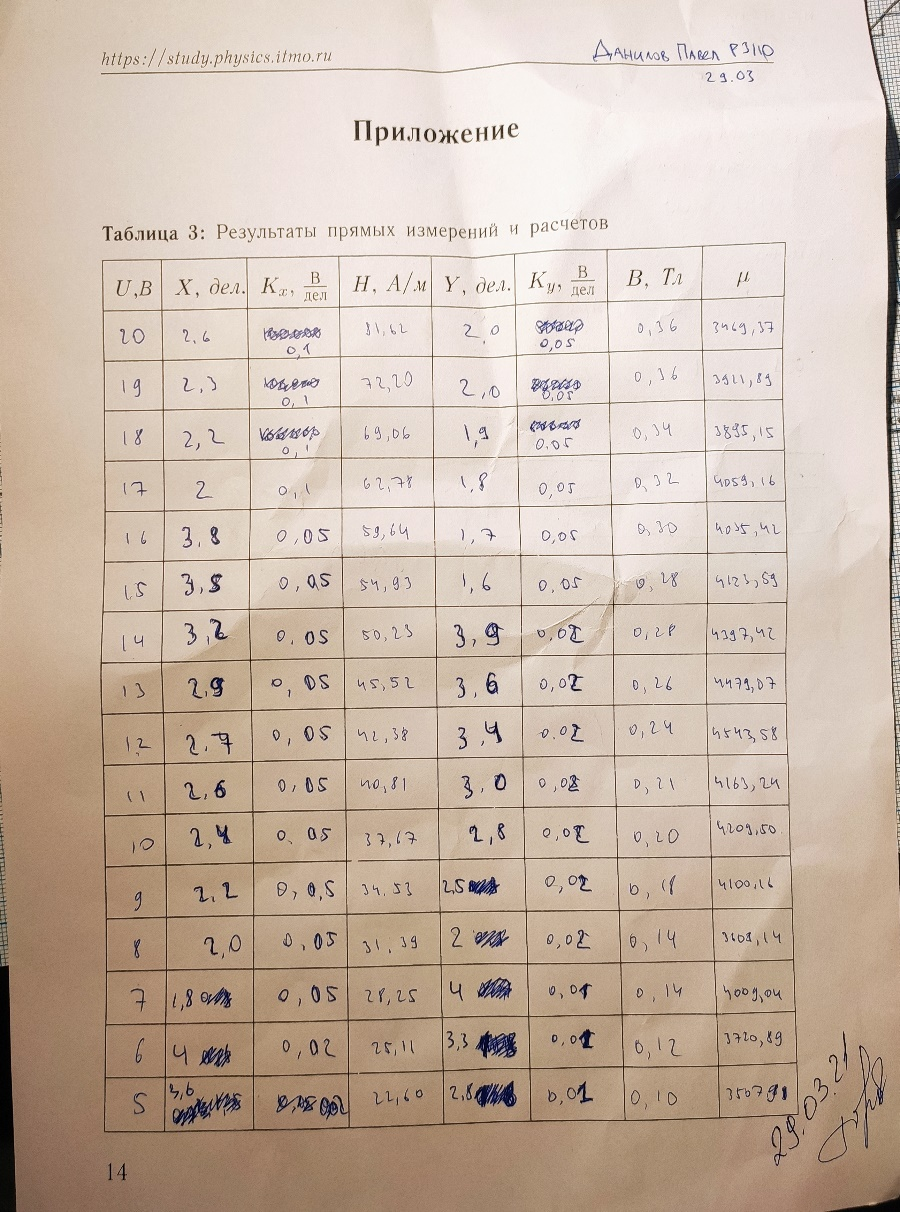 https://study.physics.itmo.ru
Данилов Павел P3110
29.03
Приложение
Таблица 3: Результаты прямых измерений и расчетов
U,В X, дел. Kx, В/дел H, А/м Y, дел. Ky, В/дел B, Тл μ
20 2,6 0,1 81,62 2,0 0,05 0,36 3469,37
19 2,3 0,1 72,20 2,0 0,05 0,36 3921,89
18 2,2 0,1 69,06 1,9 0,05 0,34 3895,15
17 2 0,1 62,78 1,8 0,05 0,32 4059,16
16 3,8 0,05 59,64 1,7 0,05 0,30 4035,42
15 0,05 54,93 1,6 0,05 0,28 4123,59
14 3,2 0,05 50,23 3,9 0,02 0,28 4397,42
13 2,9 0,05 45,52 3,6 0,02 0,26 4479,07
12 2,7 0,05 42,38 3,4 0.02 0,24 4543,58
11 2,6 0,05 40,81 3,0 0,02 0,21 4163,24
10 2,4 0,05 37,67 2,8 0,02 0,20 4209,50
9 2,2 0,05 34,53 2,5 0,02 0,18 4100,16
8 2,0 0,05 31,39 2 0,02 0,14 3608,14
7 1,8 0,05 28,25 4 0,01 0,14 4009,04
6 4 0,02 25,11 3,3 0,01 0,12 3720,89
5 3,6 0,02 22,60 2,8 0,01 0,10 3507,91
29.03.21
14